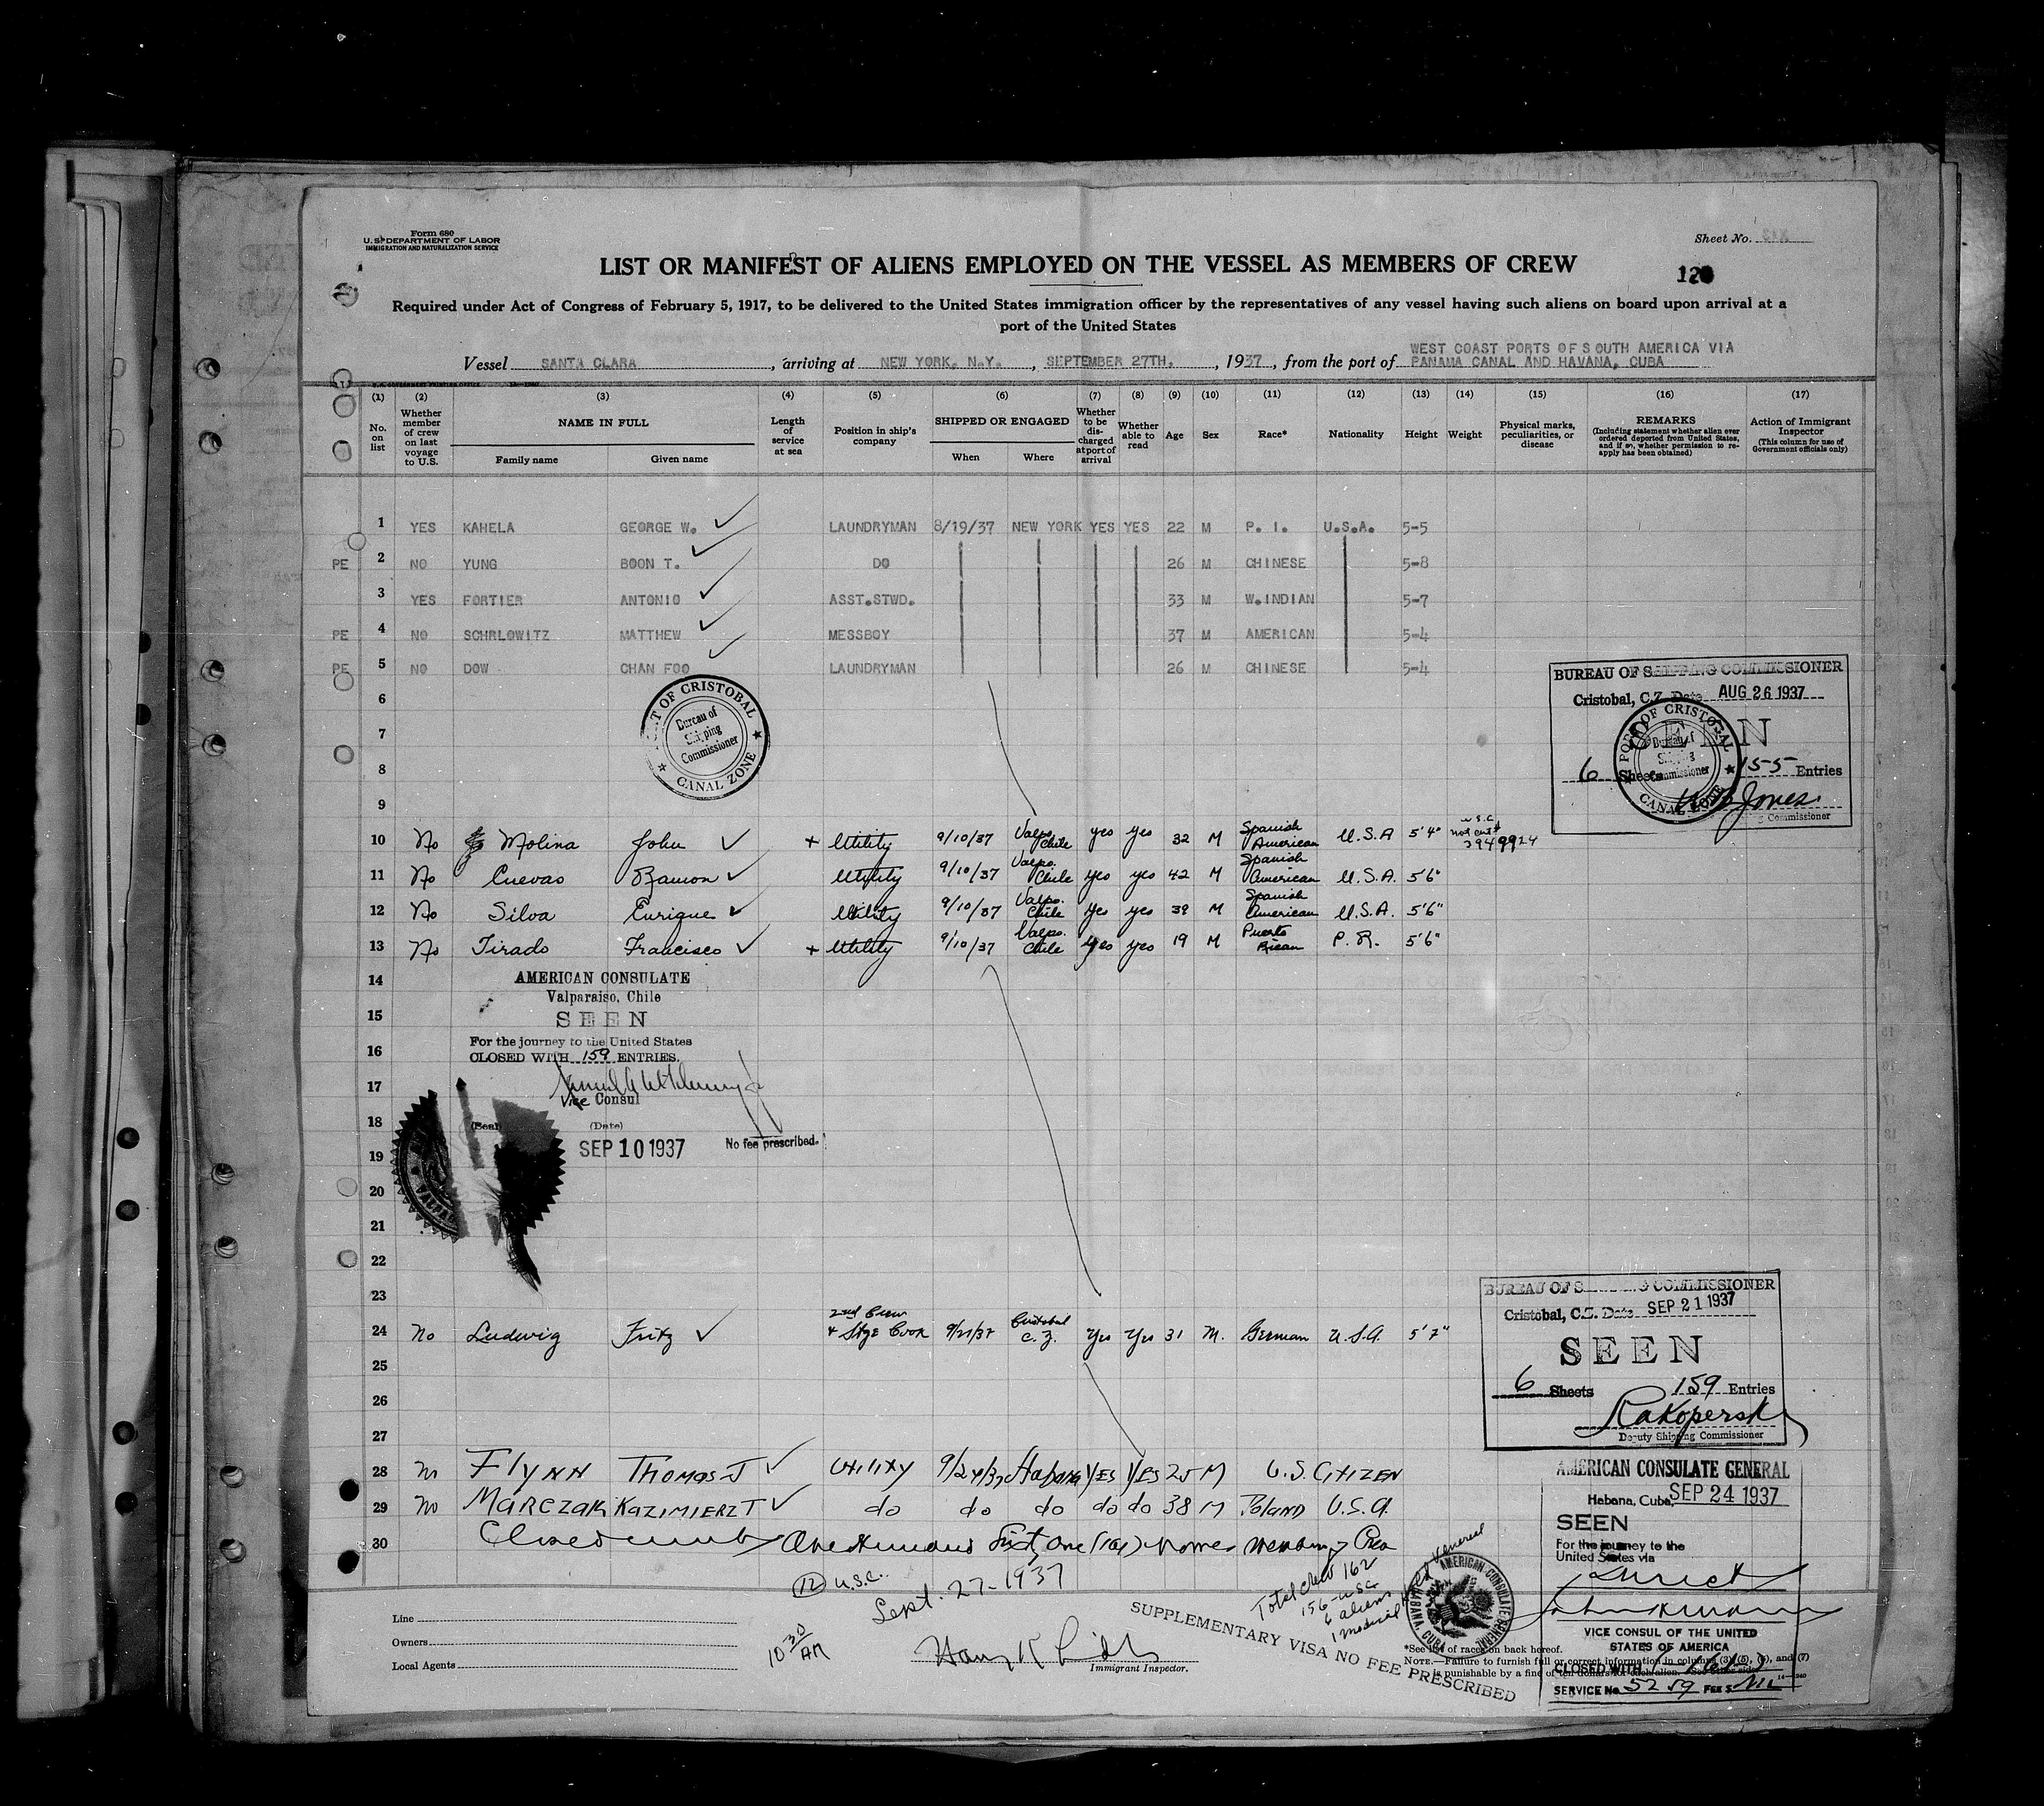 Form 680
U. S. DEPARTMENT OF LABOR
IMMIGRATION AND NATURALIZATION SERVICE
Sheet No.
LIST OR MANIFEST OF ALIENS EMPLOYED ON THE VESSEL AS MEMBERS OF CREW
120
Required under Act of Congress of February 5, 1917, to be delivered to the United States immigration officer by the representatives of any vessel having such aliens on board upon arrival at a
port of the United States
Vessel SANTA CLARA, arriving at NEW YORK, N.Y., SEPTEMBER 27TH., 1937, from the port of WEST COAST PORTS OF SOUTH AMERICA VIA
PANAMA CANAL AND HAVANA, CUBA
(1) (2) (3) (4) (5) (6) (7) (8) (9) (10) (11) (12) (13) (14) (15) (16) (17)
No. on list
Whether member of crew on last voyage to U.S.
NAME IN FULL
Family name
Given name
Length of service at sea
Position in ship's company
SHIPPED OR ENGAGED
When
Where
Whether to be discharged at port of arrival
Whether able to read
Age
Sex
Race*
Nationality
Height
Weight
Physical marks, peculiarities, or disease
REMARKS
(Including statement whether alien ever ordered deported from United States, and if so, whether permission to re-apply has been obtained)
Action of Immigrant Inspector
(This column for use of Government officials only)
1 YES KAHELA GEORGE W. LAUNDRYMAN 8/19/37 NEW YORK YES YES 22 M P. I. U.S.A. 5-5
PE 2 NO YUNG BOON T. DO 26 M CHINESE 5-8
3 YES FORTIER ANTONIO ASST.STWD. 33 M W.INDIAN 5-7
PE 4 NO SCHRLOWITZ MATTHEW MESSBOY 37 M AMERICAN 5-4
PE 5 NO DOW CHAN FOO LAUNDRYMAN 26 M CHINESE 5-4
6
7
8
9
PORT OF CRISTOBAL
Bureau of
Shipping
Commissioner
CANAL ZONE
BUREAU OF SHIPPING COMMISSIONER
Cristobal, C.Z. Date AUG 26 1937
SEEN
6 Sheets 155 Entries
Jones
Commissioner
PORT OF CRISTOBAL
Bureau of
Shipping
Commissioner
CANAL ZONE
10 No Molina John + Utility 9/10/37 Valpo. Chile yes yes 32 M Spanish American U.S.A 5'4"
11 No Cuevas Ramon Utility 9/10/37 Valpo. Chile yes yes 42 M Spanish American U.S.A. 5'6"
12 No Silva Enrique Utility 9/10/37 Valpo. Chile yes yes 39 M Spanish American U.S.A. 5'6"
13 No Tirado Francisco + Utility 9/10/37 Valpo. Chile yes yes 19 M Puerto Rican P.R. 5'6"
14
15
16
17
18
19
20
21
22
23
AMERICAN CONSULATE
Valparaiso, Chile
SEEN
For the journey to the United States
CLOSED WITH 159 ENTRIES.
Vice Consul
(Seal) (Date)
SEP 10 1937
No fee prescribed.
24 No Ludwig Fritz 2nd Crew + Stge Cook 9/21/37 Cristobal C.Z. Yes Yes 31 M. German U.S.A. 5'7"
25
26
27
BUREAU OF SHIPPING COMMISSIONER
Cristobal, C.Z. Date SEP 21 1937
SEEN
6 Sheets 159 Entries
Deputy Shipping Commissioner
28 No Flynn Thomas J Utility 9/24/37 Habana Yes Yes 25 M U.S. Citizen
29 No Marczak Kazimierz T do do do do do 38 M Poland U.S.A.
30 Closed with One Hundred Sixty one (161) names members of Crew
(12) U.S.C.
Sept. 27-1937
Total crew 162
156-USC
6 aliens
AMERICAN CONSULATE GENERAL
Habana, Cuba, SEP 24 1937
SEEN
For the journey to the
United States via
Direct
VICE CONSUL OF THE UNITED
STATES OF AMERICA
CLOSED WITH
SERVICE No. 5259 FEE $ NIL
AMERICAN CONSULATE GENERAL
HABANA, CUBA
SUPPLEMENTARY VISA NO FEE PRESCRIBED
Line
Owners
Local Agents
10 30 AM
Immigrant Inspector.
*See list of races on back hereof.
NOTE.—Failure to furnish full or correct information in columns (3), (5), (6), and (7)
is punishable by a fine of ten dollars for each alien.